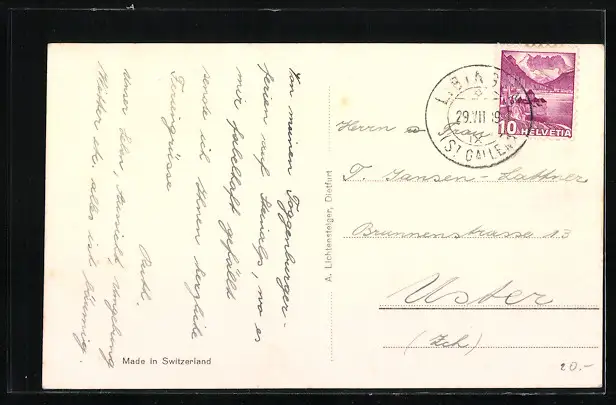 Von meinen Toggenburger-
ferien auf Steinalp, wo es
mir fabelhaft gefällt
sende ich Ihnen herzliche
Feriengrüsse
Ruth.
unser Heim, Aussicht, Umgebung
Wetter etc. alles ist bäumig.
Made in Switzerland
A. Lichtensteiger, Dietfurt
29.VII
(ST. GALLEN)
10 HELVETIA
Herrn & Frau
T. Jansen-Lattner
Brunnenstrasse 13
Uster
(Zch.)
20.-